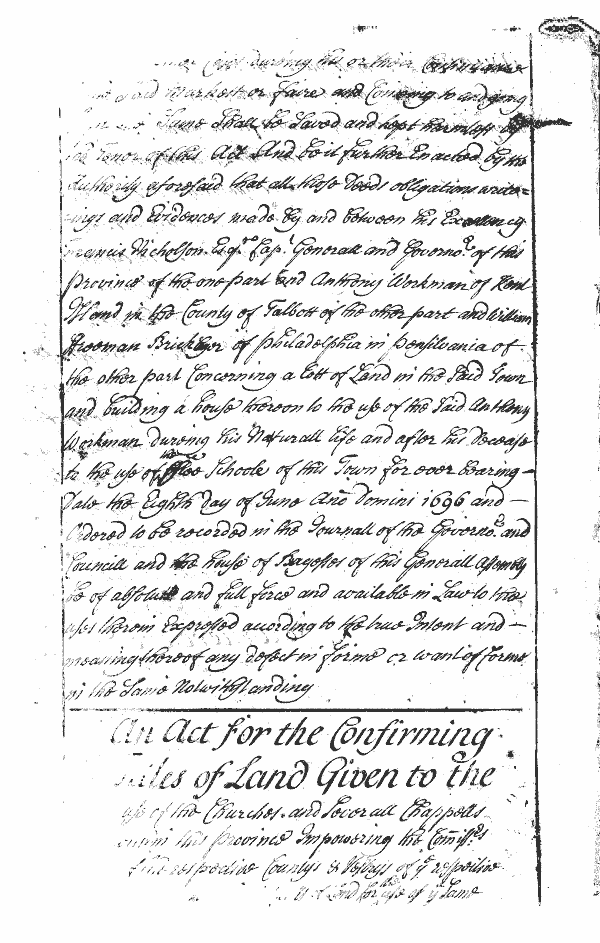 during his or their Continuance
Said Markett or Faire and Comeing to and going
Same Shall be Saved and kept harmless by
the Tenor of this Act And be it further Enacted by the
Authority aforesaid that all those Deeds obligations write=
=ings and Evidences made by and between his Excellency
Francis Nicholson Esqr. Capt. Generall and Governor. of this
Province of the one part and Anthony Workman of Kent
Island in the County of Talbott of the other part and William
Freeman Bricklyer of Philadelphia in Pensilvania of
the other part Concerning a Lott of Land in the Said Town
and building a house thereon to the use of the Said Anthony
Workman during his Naturall life and after his Decease
to the use of the free Schoole of this Town for ever bearing —
Date the Eighth Day of June Ano Domini 1696 and —
Ordered to be recorded in the Journall of the Governor. and
Councill and the house of Burgesses of this Generall Assembly
be of absolute and full force and available in Law to the
uses therein Expressed according to the true Intent and —
meaning thereof any defect in forme or want of forme
in the Same Notwithstanding
An Act for the Confirming
Titles of Land Given to the
use of the Churches and Severall Chappells
within this Province Impowering the Comissrs
of the respective Countys & Vestrys of ye respective
of Land for the use of ye Same